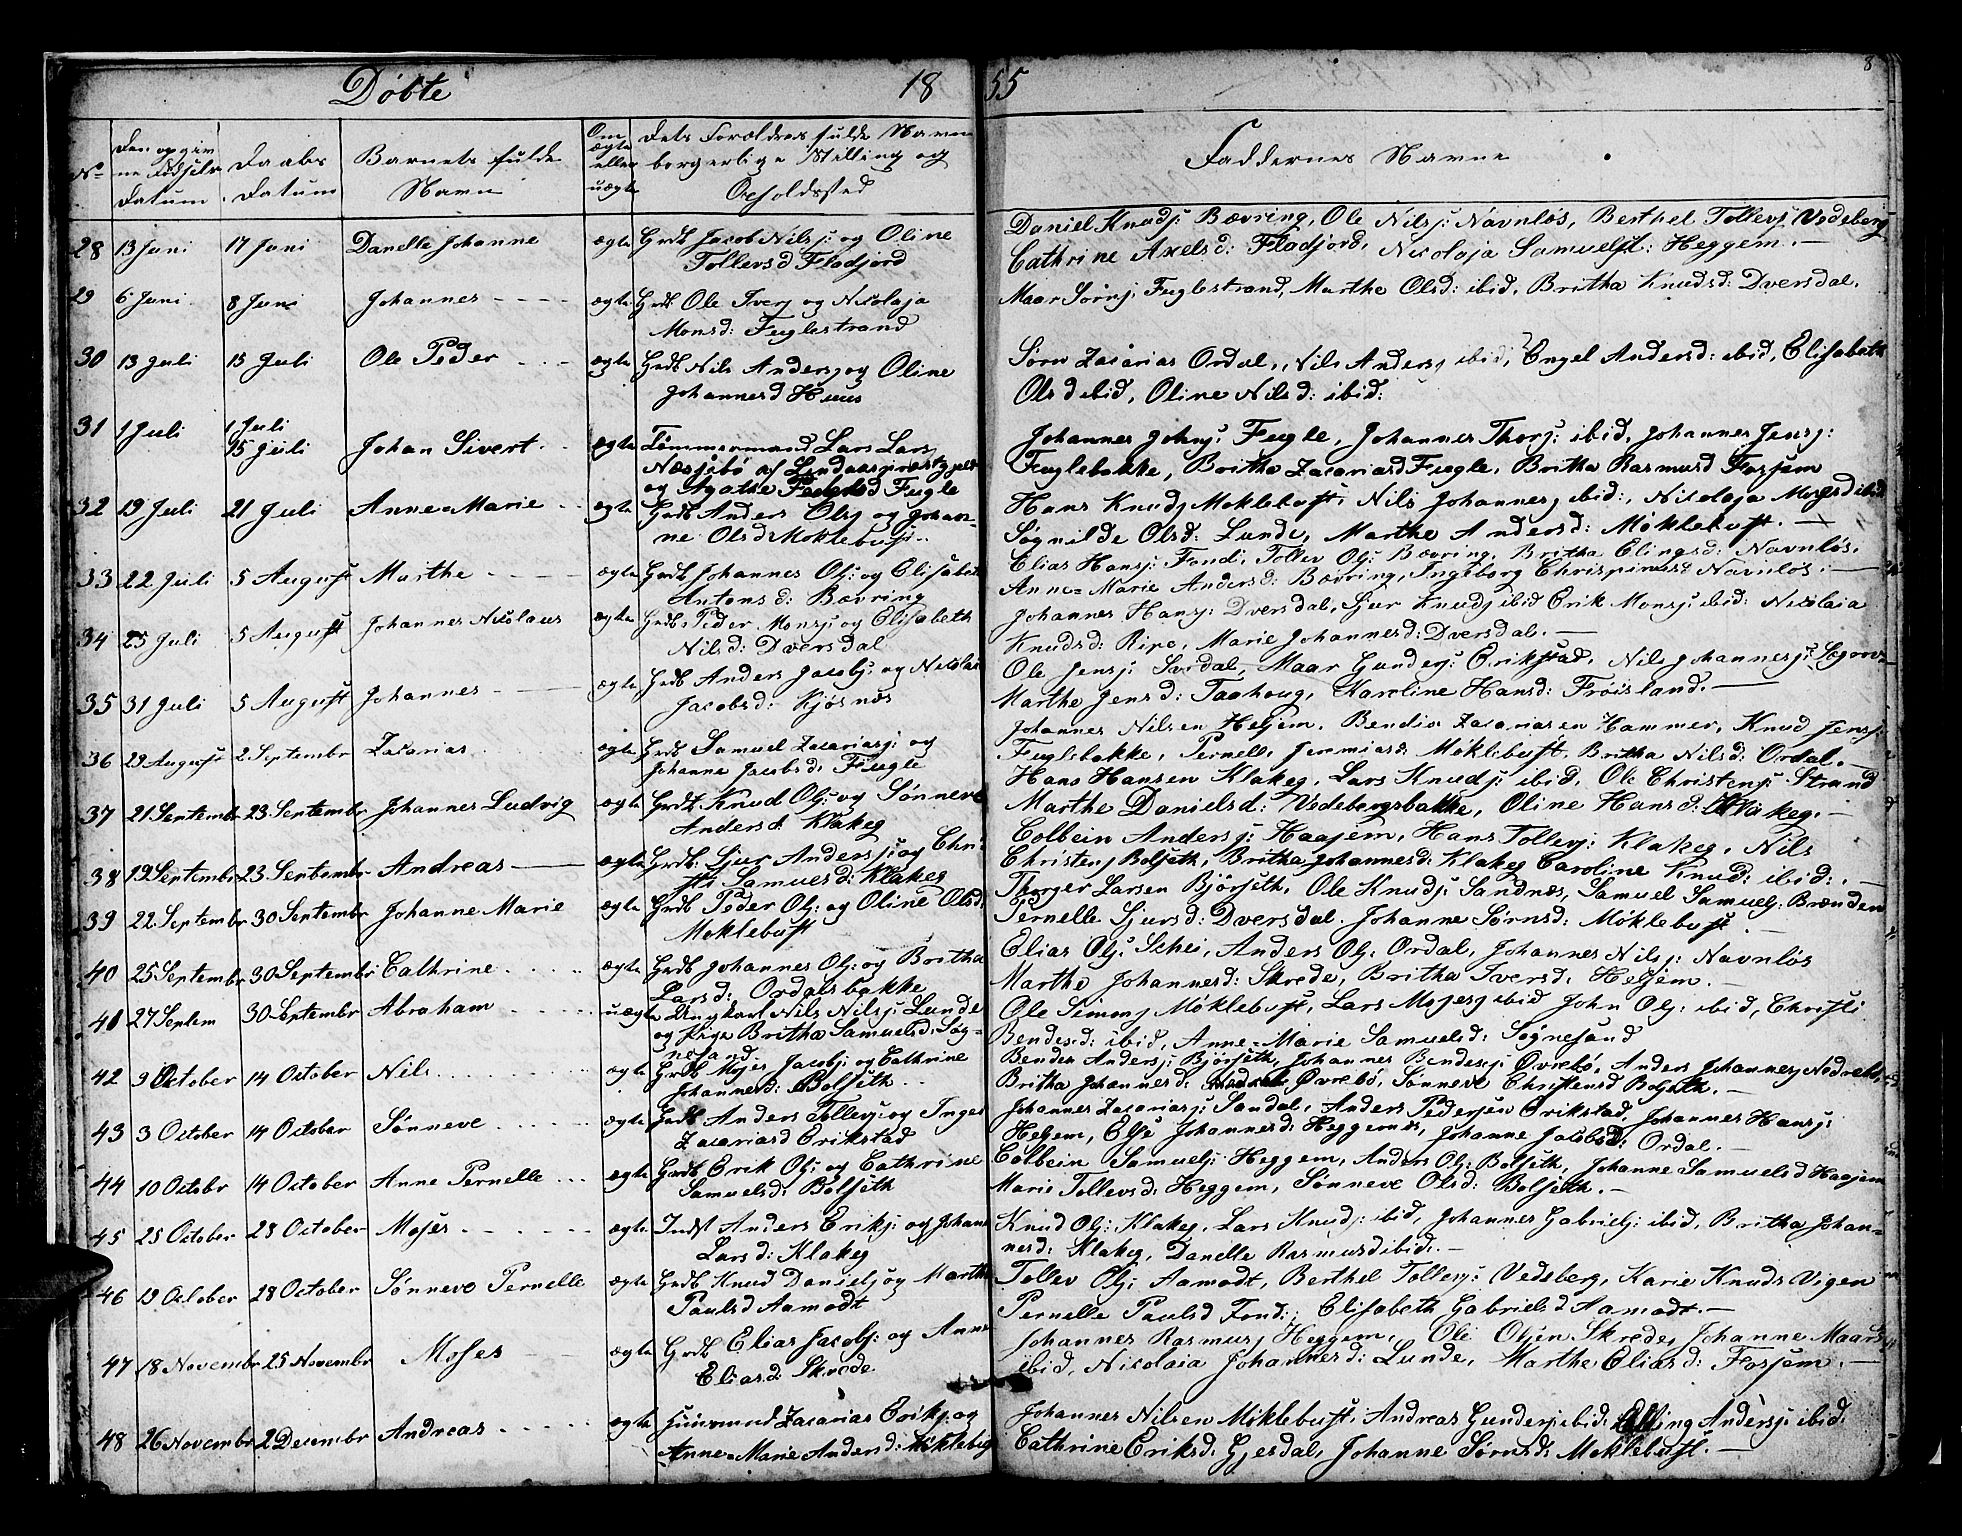 Døbte 1855
8
No
Den opgivne Fødsels Datum
Daabs Datum
Barnets fulde Navn
Om ægte eller uægte
Dets Forældres fulde Navne borgerlige Stilling og Opholdssted
Faddernes Navne
28 13 Juni 17 Juni Danelle Johanne ægte Grdb Jacob Nilsj: og Oline
Tollevsd Fladjord
Daniel Knudsj: Bævring, Ole Nilsj: Navnløs, Berthel Tollevsj Vedeberg
Cathrine Axelsd: Fladjord, Nicolaja Samuelsd: Heggem.—
29 6 Juni 8 Juni Johannes ægte Grdb Ole Iversj og Nicolaja
Monsd: Fuglestrand
Maar Sørnsj: Fuglestrand, Marthe Olsd: ibid, Britha Knudsd: Dversdal.
30 13 Juli 15 Juli Ole Peder ægte Grdb Nils Andersj og Oline
Johannesd Huus
Sørn Zacarias Ordal, Nils Andersj ibid, Engel Andersd: ibid, Elisabeth
Olsd ibid, Oline Nilsd: ibid:
31 1 Juli 1 Juli
15 Juli Johan Sivert ægte Tømmermand Lars Larsj
Næsjebø af Lindaaspræstegjeld
og Agathe Fugle
Johannes Johnsj: Fugle, Johannes Thorsj: ibid, Johannes Jensj:
Fuglebakke, Britha Zacariasd Fugle, Britha Rasmusd Fossem
32 19 Juli 21 Juli Anne-Marie ægte Grdb Anders Olsj og Johan-
ne Olsd: Møklebust
Hans Knudsj Møklebust, Nils Johannesj ibid:, Nicolaja Mosesd ibid
Søgnilde Olsd: Lunde, Marthe Andersd: Møklebust.—
33 22 Juli 5 August Marthe ægte Grdb Johannes Olsj: og Elisabeth
Antonsd: Bævring
Elias Hansj: Fond, Tollev Olsj: Bævring, Britha Elingsd: Navnløs,
Anne-Marie Andersd: Bævring, Ingeborg Chrispinusd Navnløs.—
34 25 Juli 5 August Johannes Nicolaus ægte Grdb: Peder Monsj og Elisabeth
Nilsd: Dversdal
Johannes Hansj: Dversdal, Sjur Knudsj ibid Erik Monsj: ibid: Nicolaia
Knudsd: Ripe, Marie Johannesd: Dversdal.—
35 31 Juli 5 August Johannes ægte Grdb Anders Jacobsj: og Nicolai
Jacobsd: Kjøsnæs
Ole Jensj: Sardal, Maar Gundersj: Erikstad, Nils Johannesj:
Marthe Jensd: Taahoug, Karoline Hansd: Frøisland.—
36 29 August 2 Septembr Zacarias ægte Grdb Samuel Zacariasj: og
Johanne Jacobsd: Fugle
Johannes Nilsen Heljem, Bendix Zacariasen Hammer, Knud Jensj:
Fuglebakke, Pernelle Jeremiasd: Møklebust, Britha Nilsd: Ordal.—
37 21 Septembr 23 Septembr Johannes Ludvig ægte Grdb Knud Olsj: og Sønneve
Andersd: Klakeg
Hans Hansen Klakeg, Lars Knudsj: ibid, Ole Christensj: Strand
Marthe Danielsd: Vedebergsbakke, Oline Hansd: Klakeg.—
38 19 Septembr 23 Septembr Andreas ægte Grdb: Sjur Andersj: og Chri-
sti Samuelsd: Klakeg
Colbein Andersj: Haajem, Hans Tollevsj: Klakeg, Nils
Christensj Bolseth, Britha Johannesd: Klakeg Caroline Knud: ibid:.—
39 22 Septembr 30 Septembr Johanne Marie ægte Grdb Peder Olsj: og Oline Olsd:
Møklebust
Thorger Larsen Bjørseth, Ole Knudsj: Sandnæs, Samuel Samuelsj: Brænden
Pernelle Sjursd: Dversdal. Johanne Sørnsd: Møklebust.—
40 25 Septembr 30 Septembr Cathrine ægte Grdb Johannes Olsj: og Britha
Larsd: Ordalsbakke
Elias Olsj: Schei, Anders Olsj: Ordal, Johannes Nilsj: Navnløs
Marthe Johannesd: Skrede, Britha Iversd: Heljem.—
41 27 Septem 30 Septembr Abraham uægte Ungkarl Nils Nilsj: Lunde
og Pige Britha Samuelsd: Søg-
nesand
Ole Simonsj Møklebust, Lars Mosesj ibid John Olsj: ibid, Christi
Bendesd: ibid, Anne-Marie Samuelsd: Søgnesand
42 9 October 14 October Nils ægte Grdb Moses Jacobsj: og Cathrine
Johannesd: Bolseth
Bendex Andersj: Bjørseth, Johannes Bendesj: Øvrebø, Anders Johannesj Nedrebø,
Britha Johannesd: Øvrebø, Sønneve Christensd Bolseth.—
43 3 October 14 October Sønneve ægte Grdb Anders Tollevsj: og Inger
Zacariasd Erikstad
Johannes Zacariasj: Sandal, Anders Pedersen Erikstad, Johannes Hansj:
Heljem, Else Johannesd: Heggemes, Johanne Jacobsd: Ordal.—
44 10 Octobr 14 October Anne Pernelle ægte Grdb Erik Olsj: og Cathrine
Samuelsd: Bolseth
Colbein Samuelsj: Heggem, Anders Olsj: Bolseth, Johanne Samuelsd Haajem
Marie Tollevsd: Heggem, Sønneve Olsd: Bolseth.—
45 25 October 28 October Moses ægte Indst Anders Eriksj: og Johann
Larsd: Klakeg
Knud Olsj: Klakeg, Lars Knudsj: ibid, Johannes Gabrielsj: ibid, Britha Johan-
nesd: Klakeg, Danelle Rasmusd ibid:.—
46 19 October 28 October Sønneve Pernelle ægte Grdb Knud Danielsj og Marthe
Paulsd Aamodt
Tollev Olsj: Aamodt, Berthel Tollevsj: Vedeberg, Karie Knuds Vigen
Pernelle Paulsd Fond:, Elisabeth Gabrielsd Aamodt.—
47 18 Novembr 25 Novembr Moses ægte Grdb Elias Jacobsj: og Anne
Eliasd: Skrede
Johannes Rasmusj Heggem, Ole Olsen Skrede, Johanne Maars
ibid, Nicolaia Johannesd: Lunde, Marthe Eliasd: Fossem.—
48 26 Novembr 2 Decembr Andreas ægte Huusmand Zacarias Eriksj: og
Anne-Marie Andersd: Møklebust
Johannes Nilsen Møklebust, Andreas Gundersj ibid: Elling Andersj: ibid:
Cathrine Eriksd: Gjesdal, Johanne Sørnsd: Møklebust.—